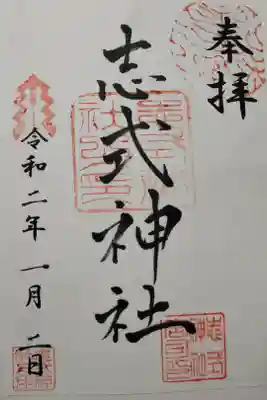 奉拝
志式神社
令和二年一月二日